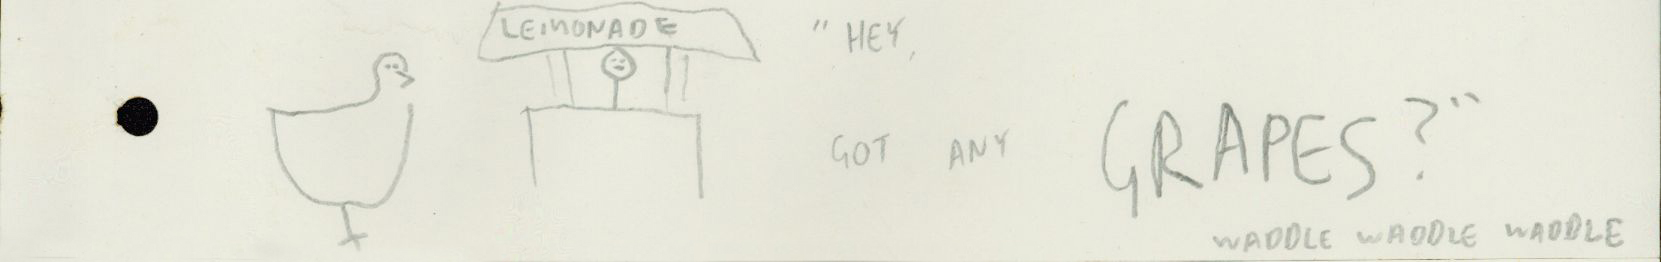 LEMONADE
"HEY,
GOT ANY GRAPES?"
WADDLE WADDLE WADDLE